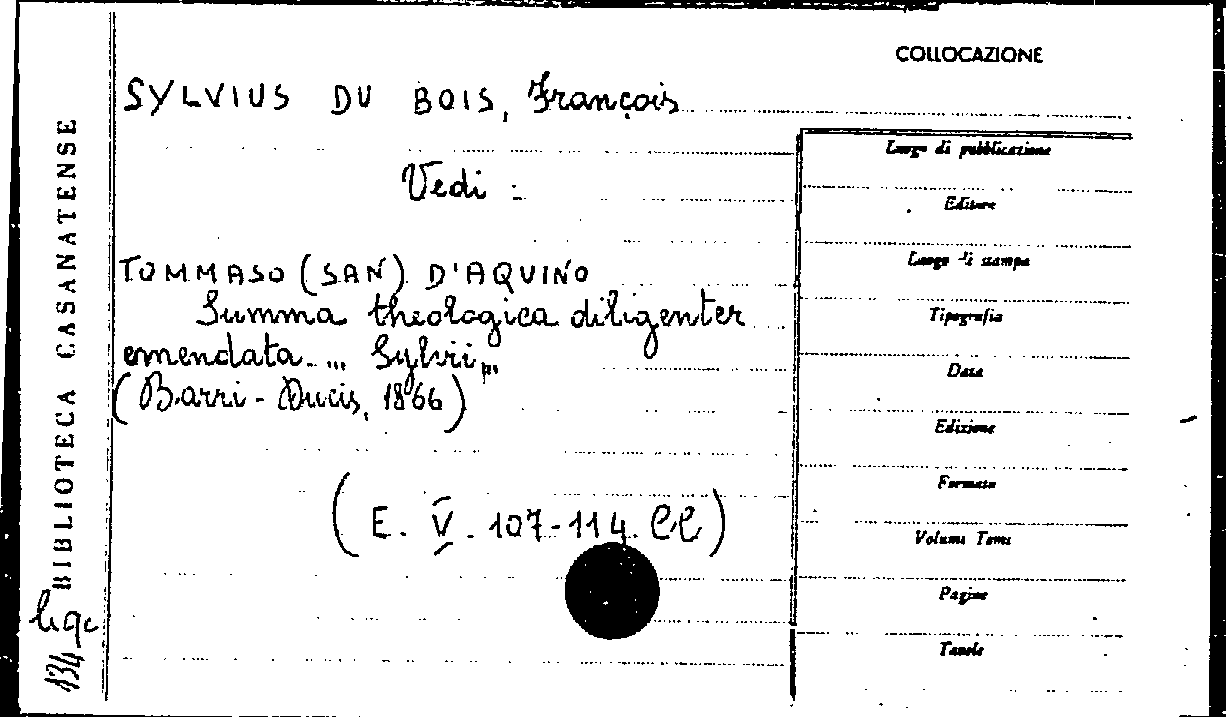 COLLOCAZIONE
SYLVIUS DU BOIS, François
Vedi :
TOMMASO (SAN) D'AQUINO
Summa theologica diligenter
emendata ... Sylvii ...
(Barri-Ducis, 1866)
(E. V. 107-114. CC)
Luogo di pubblicazione
Editore
Luogo di stampa
Tipografia
Data
Edizione
Formato
Volumi Tomi
Pagine
Tavole
BIBLIOTECA CASANATENSE
134